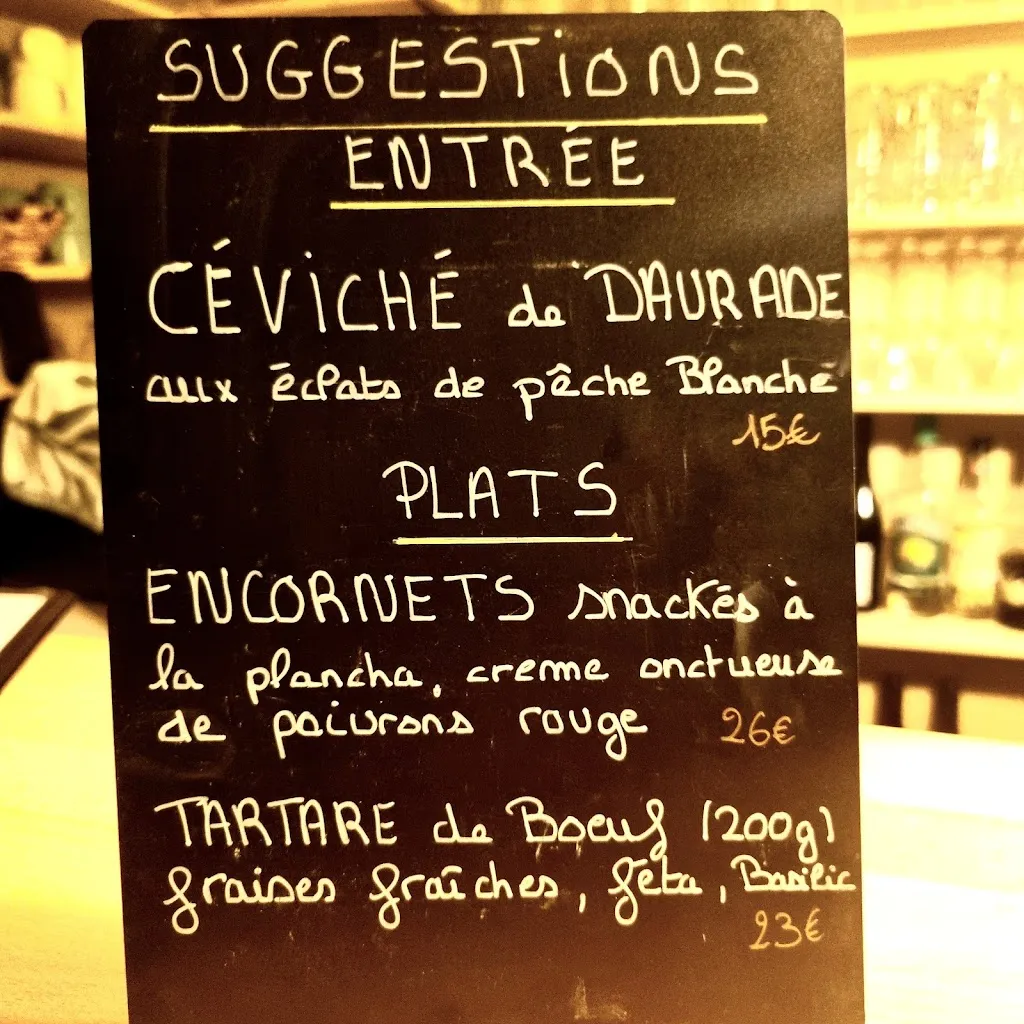 SUGGESTiONS
ENTRÉE
CÉViCHÉ de DAURADE
aux éclats de pêche Blanche
15€
PLATS
ENCORNETS snackés à
la plancha, creme onctueuse
de poivrons rouge 26€
TARTARE de Boeuf (200g)
fraises fraîches, fêta, Basilic
23€